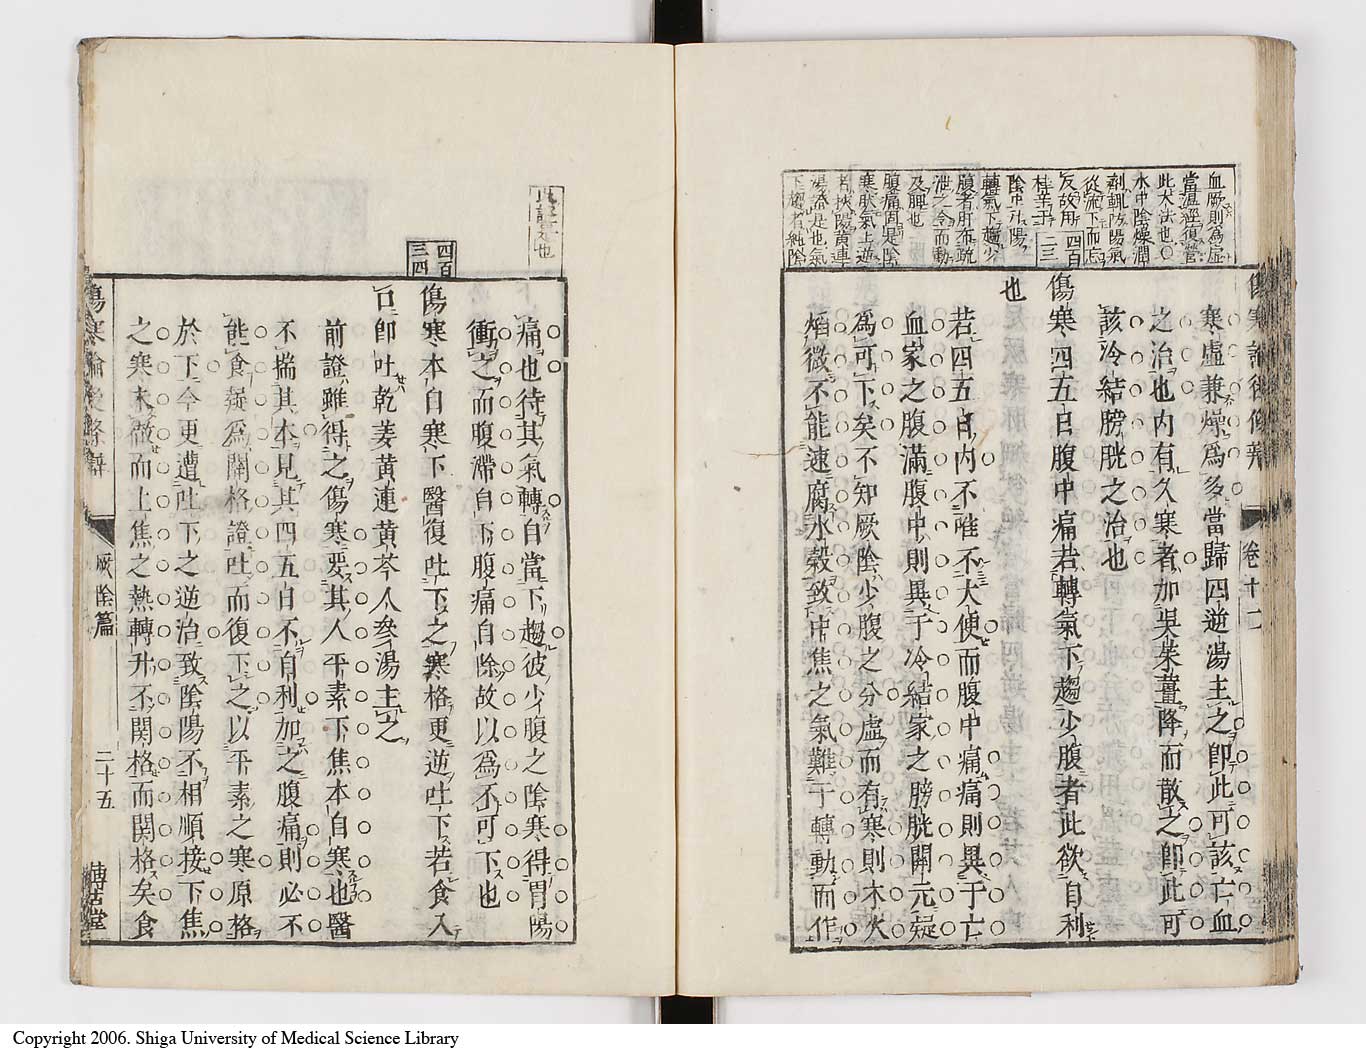 血厥則爲虛
當溫經復營
此大法也〇
水中陰燥潤
劑輒防陽氣
從流下而忘
反故用
桂辛干
四百
三三
陰中㳂陽
轉氣下趨少
腹者肝布疏
泄之令而動
及脾也
腹痛固是陰
寒厥氣上逆
若挾陽黃連
湯蓋是也氣
下趨者純陰
傷寒論後條辨
寒虛兼燥爲多當歸四逆湯主之卽此可該亡血
之治也內有久寒者加吳茱薑降而散之卽此可
該冷結膀胱之治也
傷寒四五日腹中痛若轉氣下趨少腹者此欲自利
也
若四五日內不唯不大便而腹中痛痛則異于亡
血家之腹滿腹中則異于冷結家之膀胱關元疑
爲可下矣不知厥陰少腹之分虛而有寒則木火
焰微不能速腐水穀致中焦之氣難于轉動而作
卷十二
此證是也
四百
三四
痛也待其氣轉自當下趨彼少腹之陰寒得胃陽
衝之而腹滯自下腹痛自除故以爲不可下也
傷寒本自寒下醫復吐下之寒格更逆吐下若食入
口卽吐乾姜黃連黃芩人參湯主之
前證雖得之傷寒要其人平素下焦本自寒也醫
不揣其本見其四五日不自利加之腹痛則必不
能食疑爲關格證吐而復下之以平素之寒原格
於下今更遭吐下之逆治致陰陽不相順接下焦
之寒未徹而上焦之熱轉升不關格而關格矣食
傷寒論後條辨
厥陰篇
二十五
博古堂
Copyright 2006. Shiga University of Medical Science Library